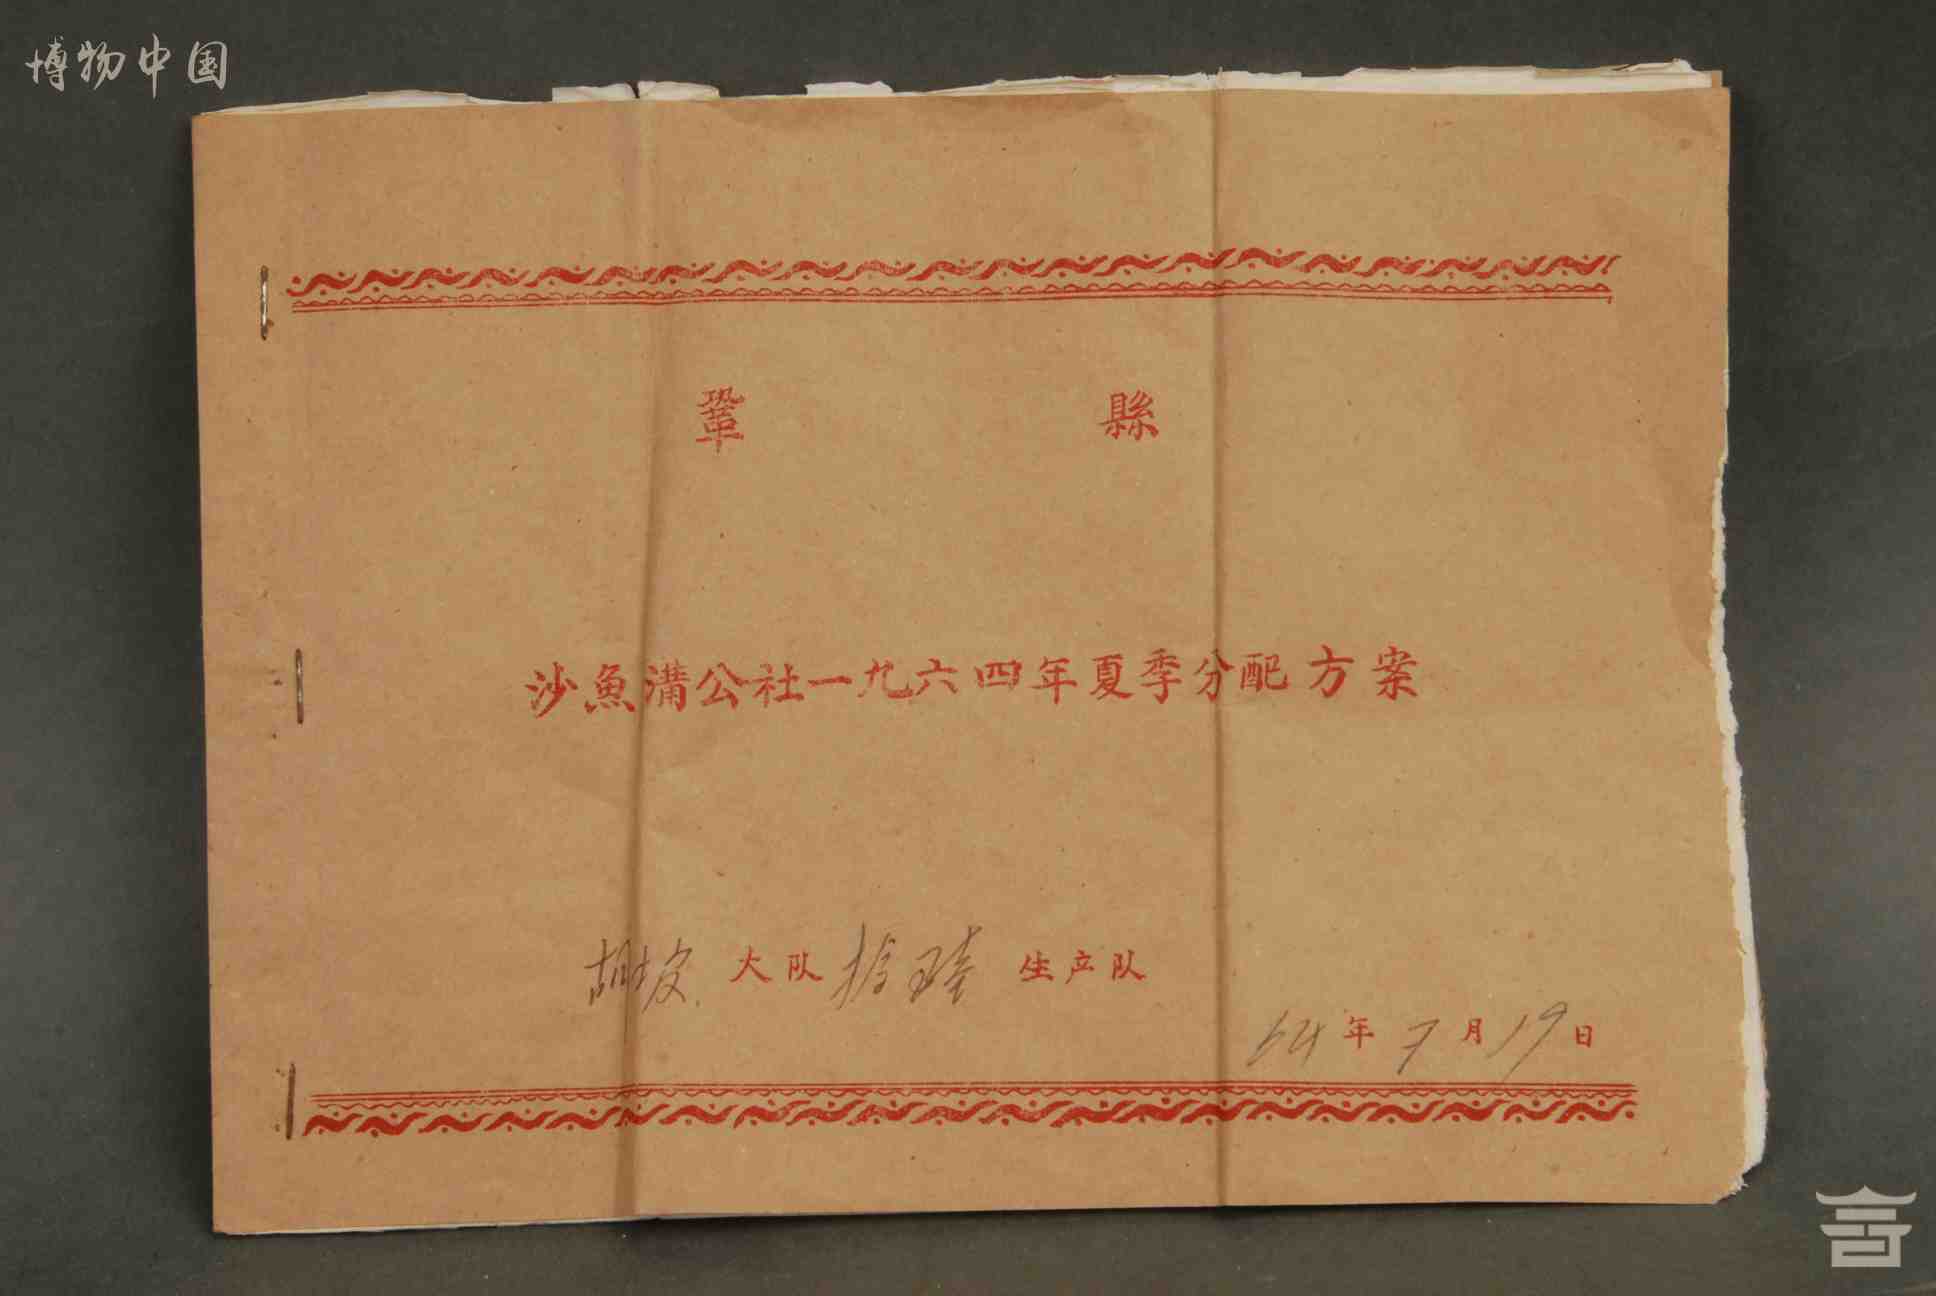 博物中国
鞏 縣
沙魚溝公社一九六四年夏季分配方案
胡坡 大队 拾 生产队
64年7月19日